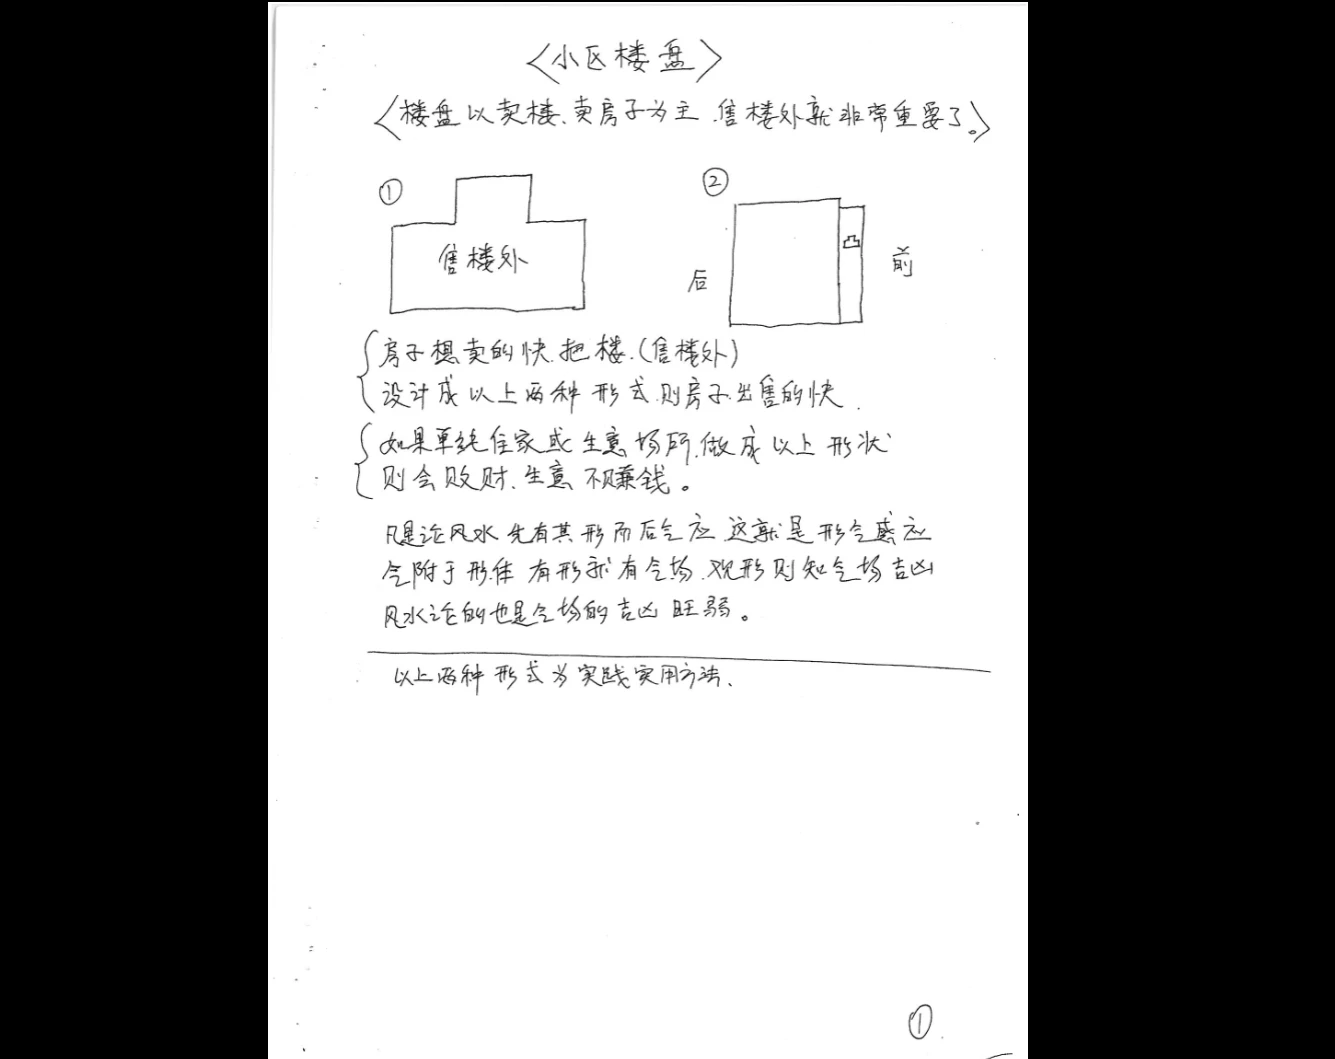 〈小区楼盘〉
〈楼盘以卖楼、卖房子为主.售楼外就非常重要了。〉
①
②
售楼外
凸
后
前
房子想卖的快.把楼.(售楼外)
设计成以上两种形式.则房子出售的快.
如果单纯住家或生意场所.做成以上形状
则会败财、生意不赚钱。
凡是论风水先有其形而后气应.这就是形气感应
气附于形体 有形就有气场.观形则知气场吉凶
风水论的也是气场的吉凶旺弱。
以上两种形式为实践实用方法、
①